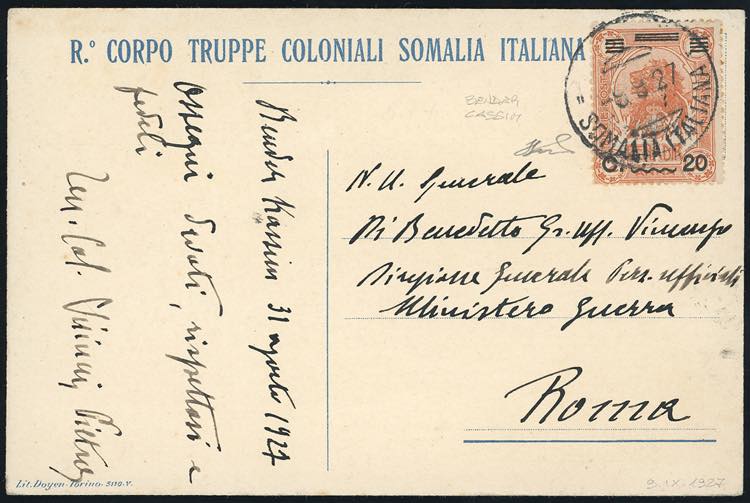 R.º CORPO TRUPPE COLONIALI SOMALIA ITALIANA
Bender Kassim 31 agosto 1927
Ossequi devoti, rispettosi e
fedeli
Ten. Col.
BENDER
CASSIM
SOMALIA ITALIANA
9 27
20
N. U. Generale
Di Benedetto Gr. Uff. Vincenzo
Direzione Generale Pers. Ufficiali
Ministero Guerra
Roma
Lit. Doyen-Torino-
9.IX.1927